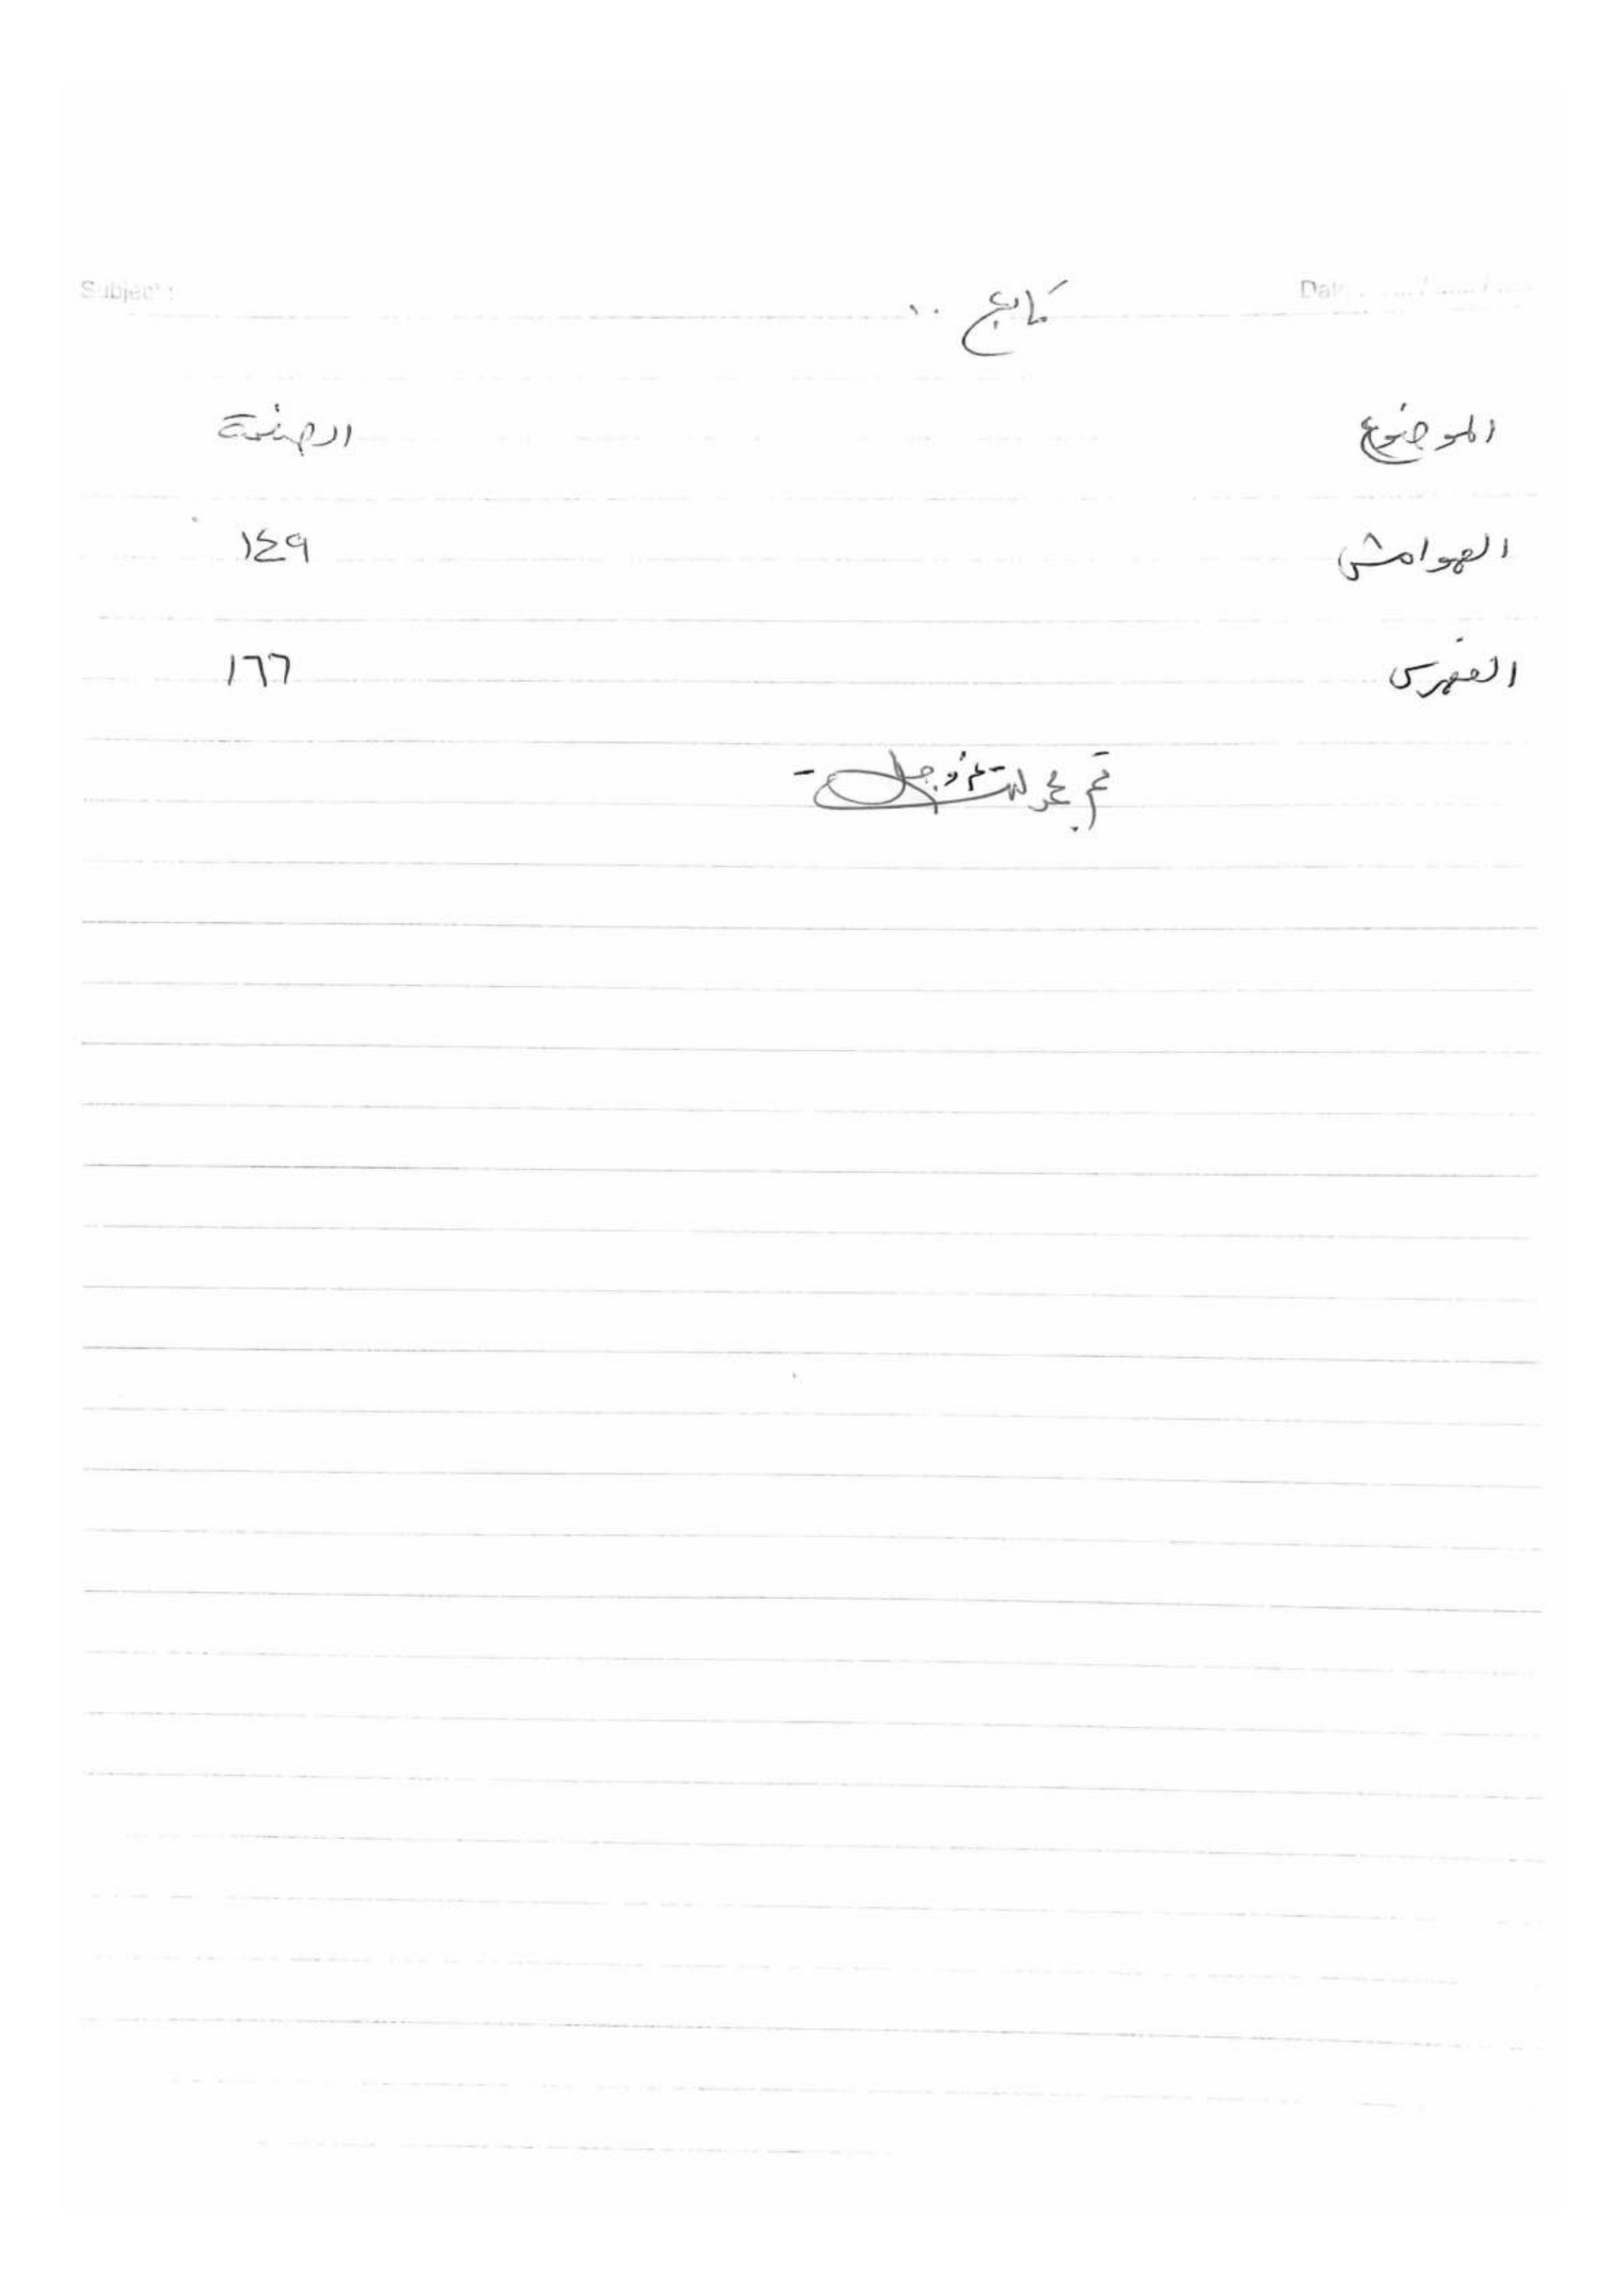 Subject : تابع .. Date
الموضوع الصفحة
الهوامش ١٤٩
الفهرس ١٦٦
تم بحمد الله - عز وجل -